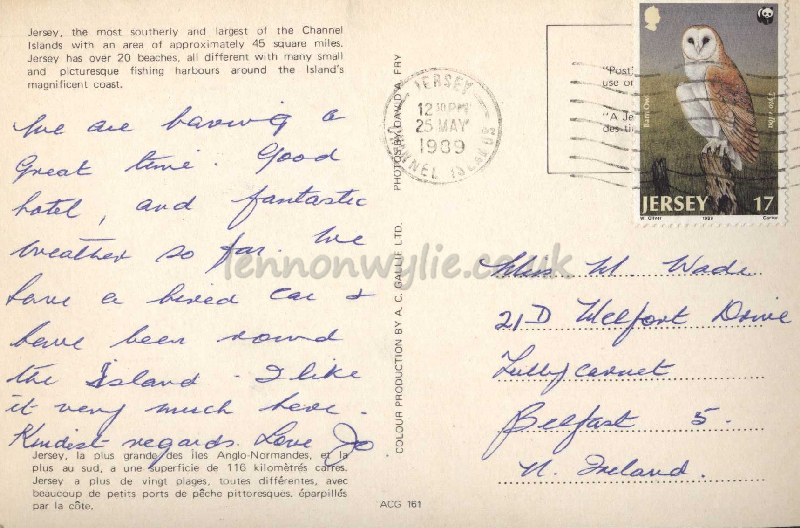 Jersey, the most southerly and largest of the Channel
Islands with an area of approximately 45 square miles.
Jersey has over 20 beaches, all different with many small
and picturesque fishing harbours around the Island's
magnificent coast.
We are having a
Great time. Good
hotel, and fantastic
weather so far. We
have a hired car &
have been round
the Island - I like
it very much here.
Kindest regards. Love Jo.
Jersey, la plus grande des îles Anglo-Normandes, et la
plus au sud, a une superficie de 116 kilomètrés carrés.
Jersey a plus de vingt plages, toutes différentes, avec
beaucoup de petits ports de pêche pittoresques, éparpillés
par la côte.
ACG 161
COLOUR PRODUCTION BY A. C. GALLIE LTD.
PHOTOS BY DAVID A. FRY
JERSEY
12 30 PM
25 MAY
1989
CHANNEL ISLANDS
"Posti
use or
"A Je
des-ti
Barn Owl
Tyto alba
JERSEY 17
W. Oliver 1989 Cartor
Miss M. Wade
21D Melfort Drive
Tullycarnet
Belfast 5.
N. Ireland.
lennonwylie.co.uk